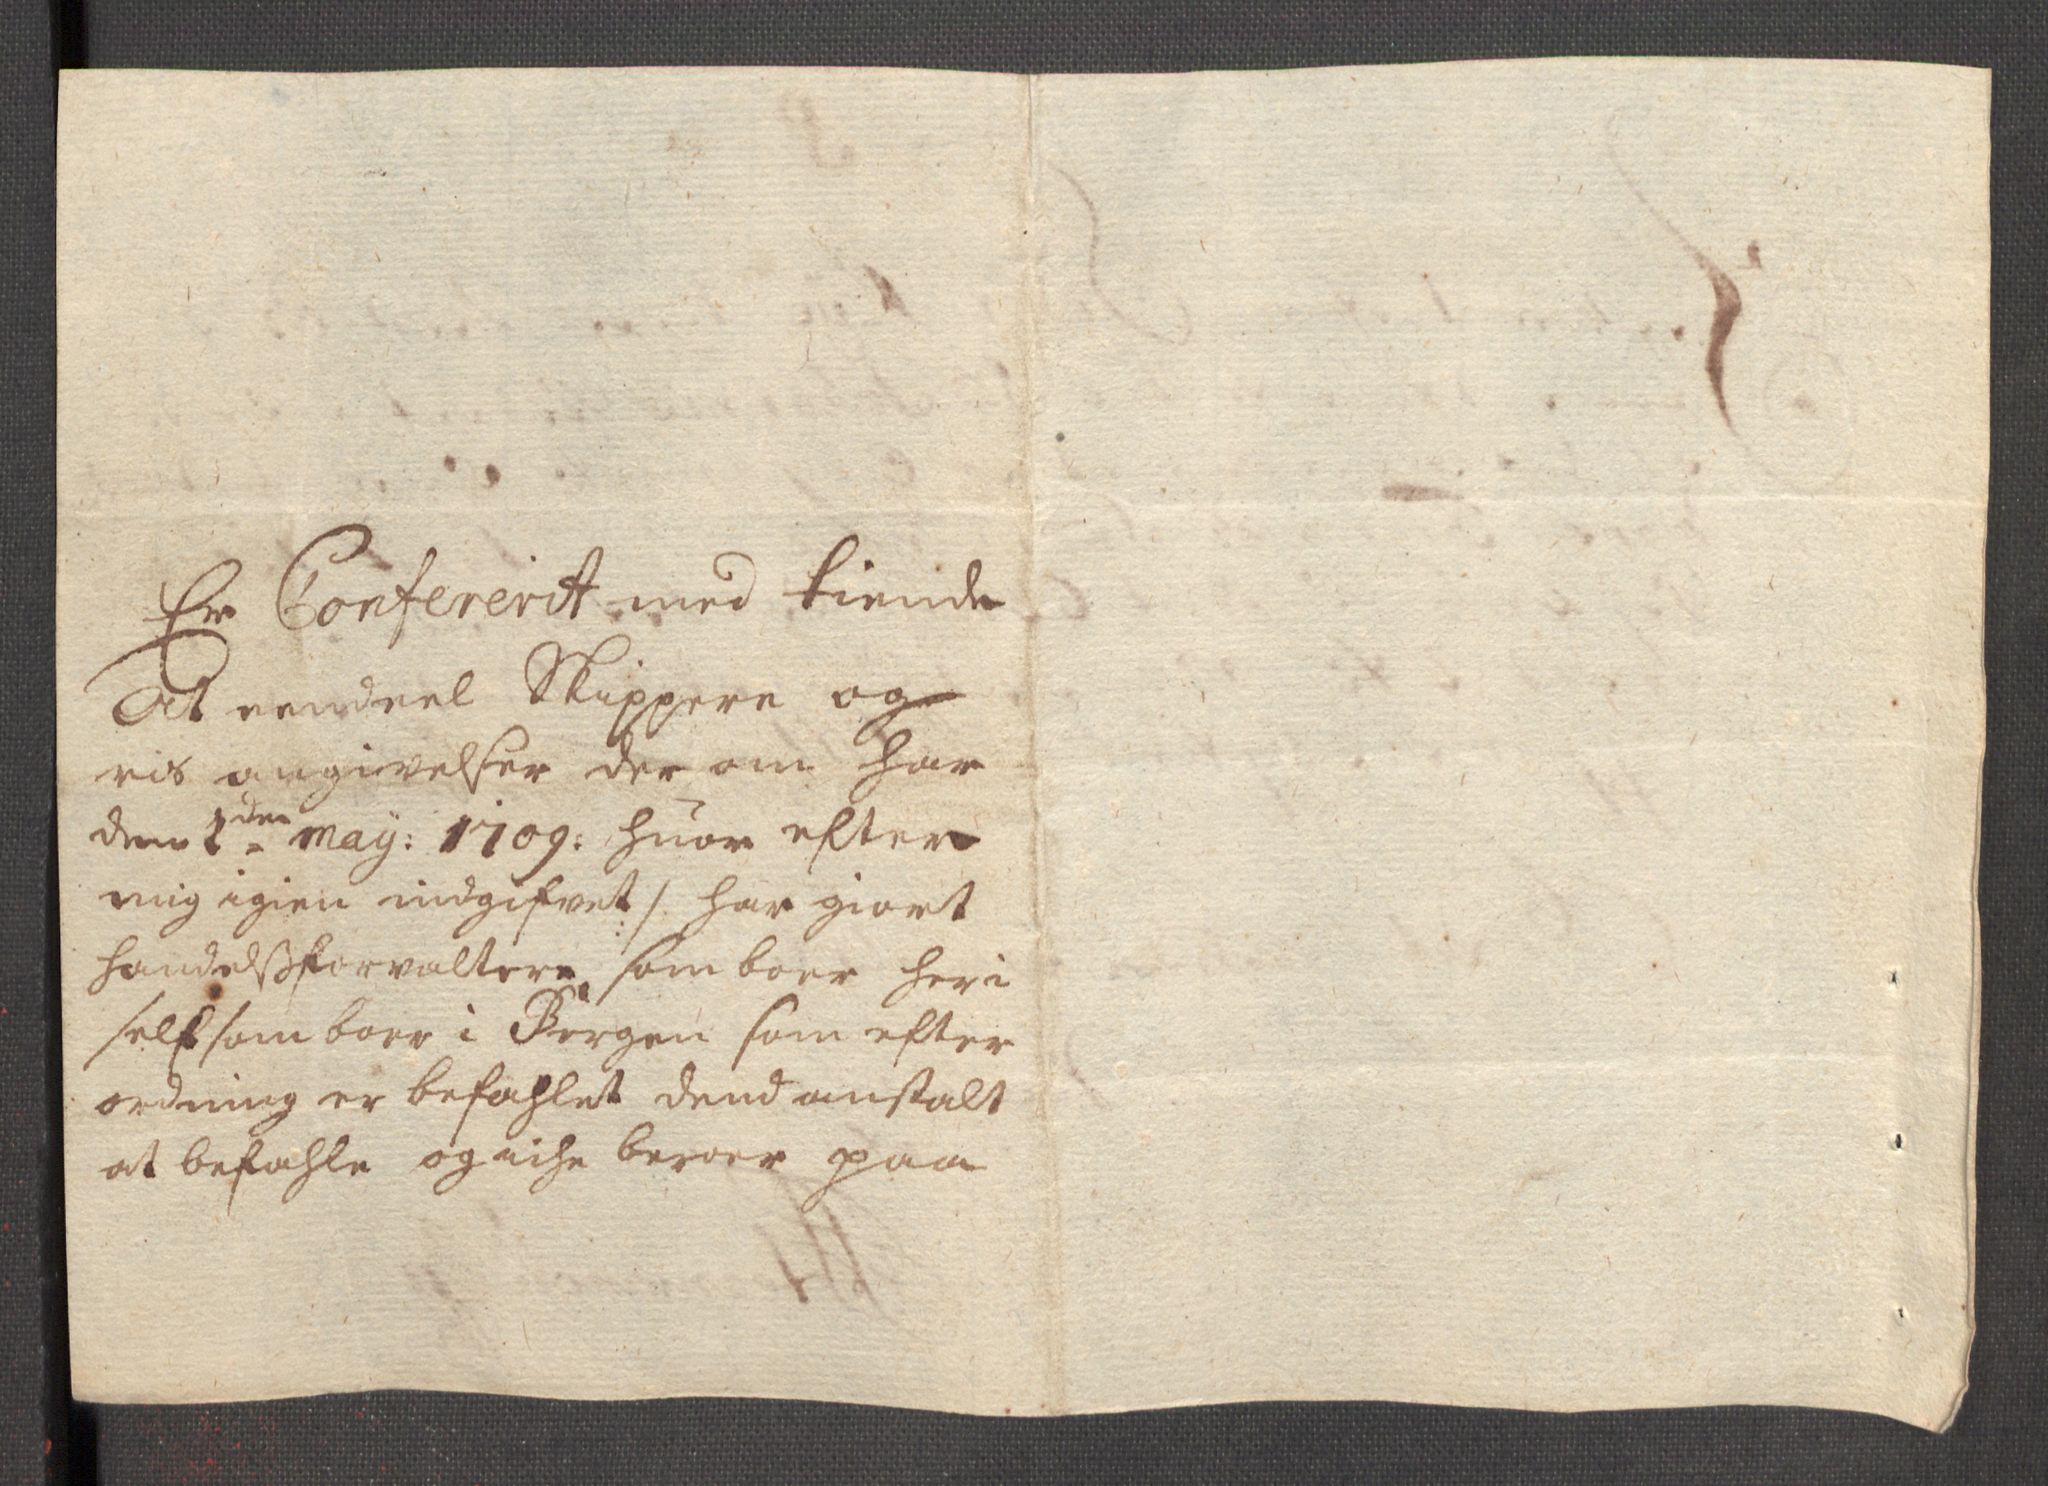 Er Confererit med tiende
At eendeel Skippere og
ris angivelser der om har
dem 1den May: 1709: huor efter
mig igien indgifvet :/ har giort
handelsforvaltere som boer her i
self som boer i Bergen som efter
ordning er befahlet dend anstalt
at befahle og iche beroer paa